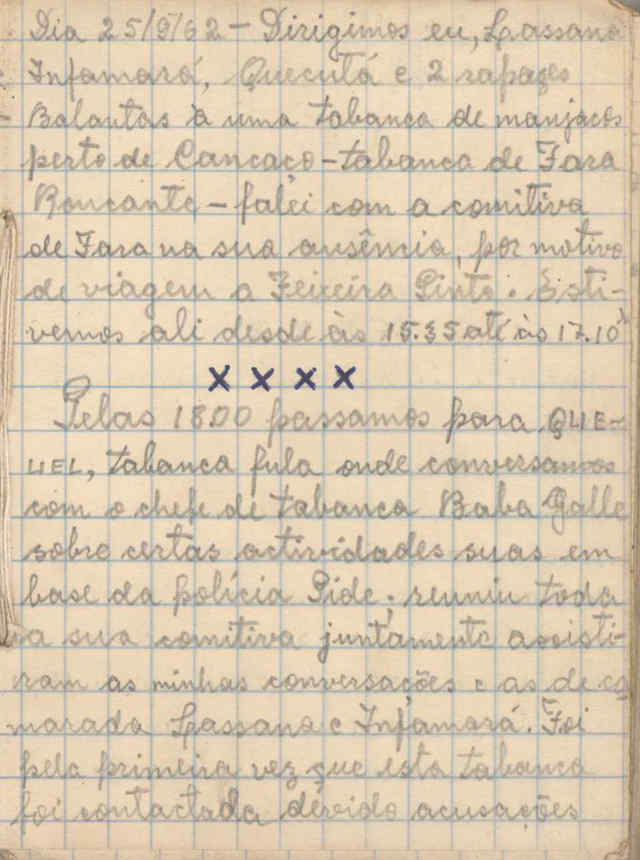 Dia 25/9/62 - Dirigimos eu, Lassana
Infamará, Quecutá e 2 rapazes
Balantas à uma tabanca de manjacos
perto de Cancaço - tabanca de Fara
Roncante - falei com a comitiva
de Fara na sua ausência, por motivo
de viagem a Teixeira Pinto. Esti-
vemos ali desde às 15.35 até às 17.10
x x x x
Pelas 18.00 passamos para QUE-
UEL, tabanca fula onde conversamos
com o chefe de tabanca Baba Galle
sobre certas actividades suas em
base da polícia Pide; reuniu toda
a sua comitiva juntamente assisti-
ram as minhas conversações e as de ca
marada Lassana e Infamará. Foi
pela primeira vez que esta tabanca
foi contactada devido acusações